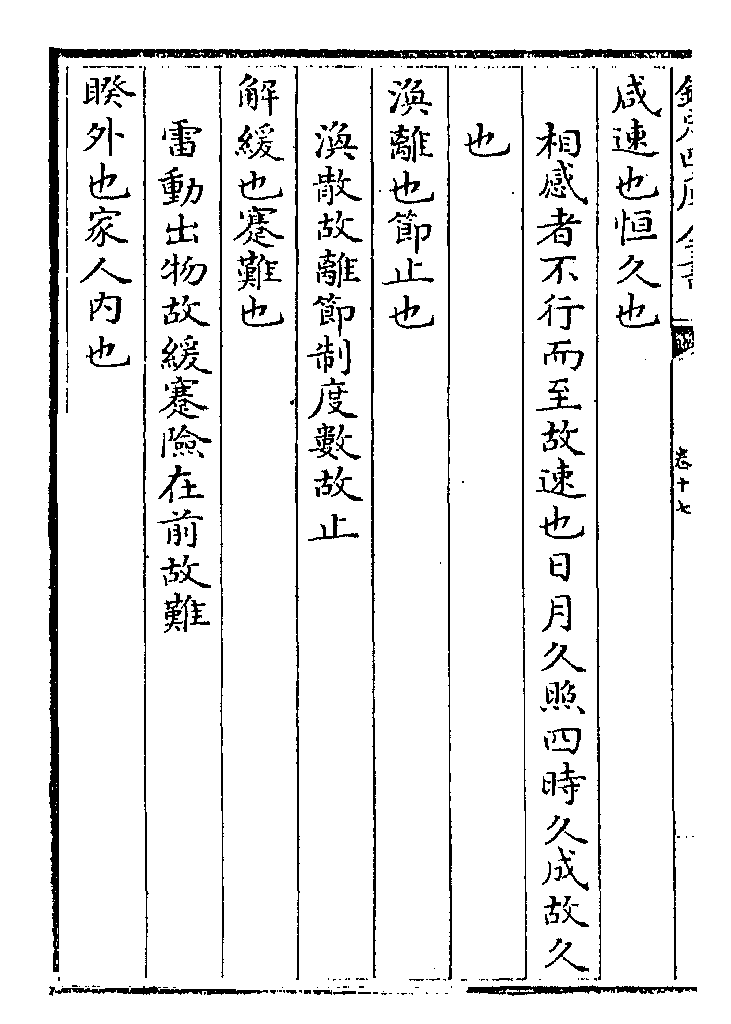 欽定四庫全書
卷十七
咸速也恒久也
相感者不行而至故速也日月久照四時久成故久
也
渙離也節止也
渙散故離節制度數故止
解緩也蹇難也
雷動出物故緩蹇險在前故難
睽外也家人內也